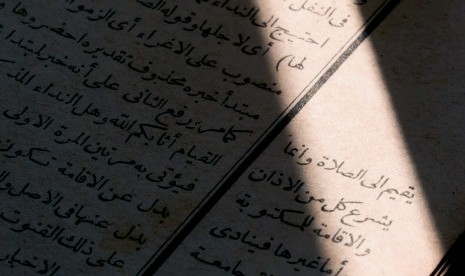 في النفل
احتيج الى النداء
لها م أى لاجلها وقوله
منصوب على الاغراء أى الزموا
مبتدأ خبره محذوف تقديره احضروها و
كما مر ورفع الثانى على أنه خبر لمبتدا
القيام أثابكم الله وهل النداء
فيؤتى به مرتين المرة الاولى
بدل عن الاقامة تكون
بدل عنها فى الاصل
على ذلك القنوت
الاخبار
يقيم الى الصلاة وانما
يشرع كل من الاذان
والاقامة للمكتوبة
أما غيرها فينادى
جامعة